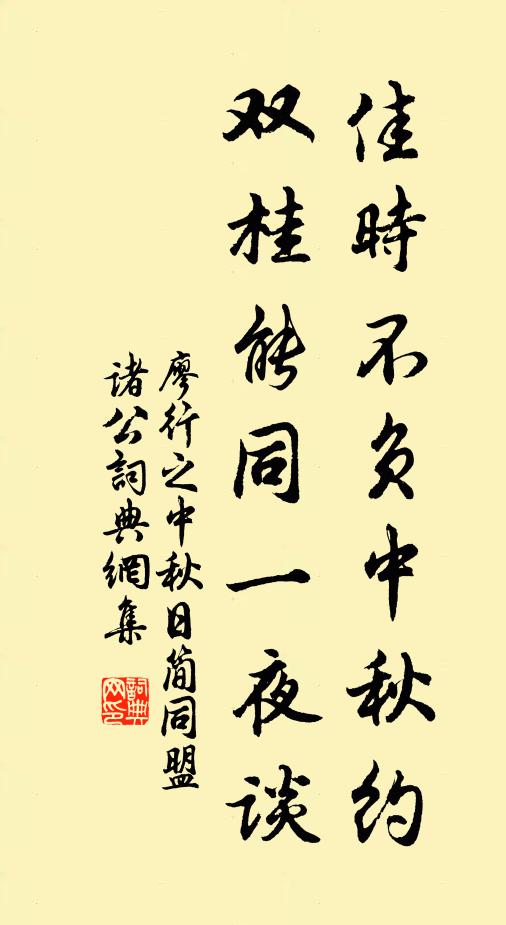 佳時不負中秋約
双桂能同一夜談
廖行之中秋日簡同盟
諸公詞典網集
詞典網印